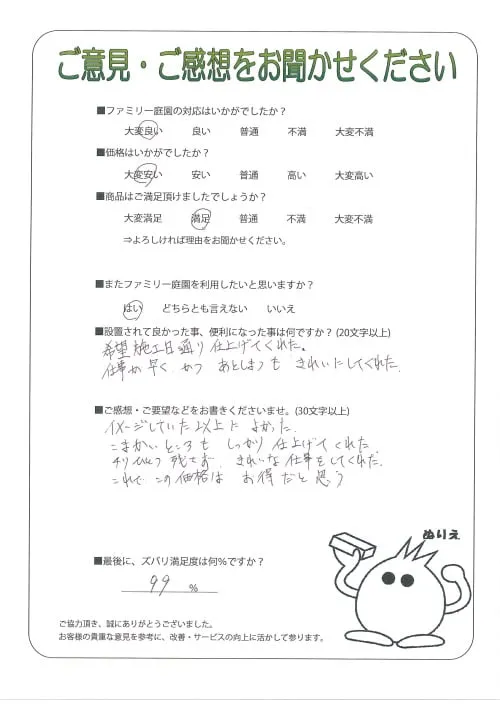 ご意見・ご感想をお聞かせください
■ファミリー庭園の対応はいかがでしたか？
大変良い 良い 普通 不満 大変不満
■価格はいかがでしたか？
大変安い 安い 普通 高い 大変高い
■商品はご満足頂けましたでしょうか？
大変満足 満足 普通 不満 大変不満
⇒よろしければ理由をお聞かせください。
■またファミリー庭園を利用したいと思いますか？
はい どちらとも言えない いいえ
■設置されて良かった事、便利になった事は何ですか？(20文字以上)
希望施工日通り仕上げてくれた。
仕事が早く かつ あとしまつも きれいにしてくれた.
■ご感想・ご要望などをお書きくださいませ。(30文字以上)
イメージしていた以上に よかった.
こまかいところも しっかり仕上げてくれた.
チリひとつ残さず. きれいな仕事をしてくれた.
これで この価格は お得だと思う
ぬりえ
■最後に、ズバリ満足度は何％ですか？
99 %
ご協力頂き、誠にありがとうございました。
お客様の貴重な意見を参考に、改善・サービスの向上に活かして参ります。